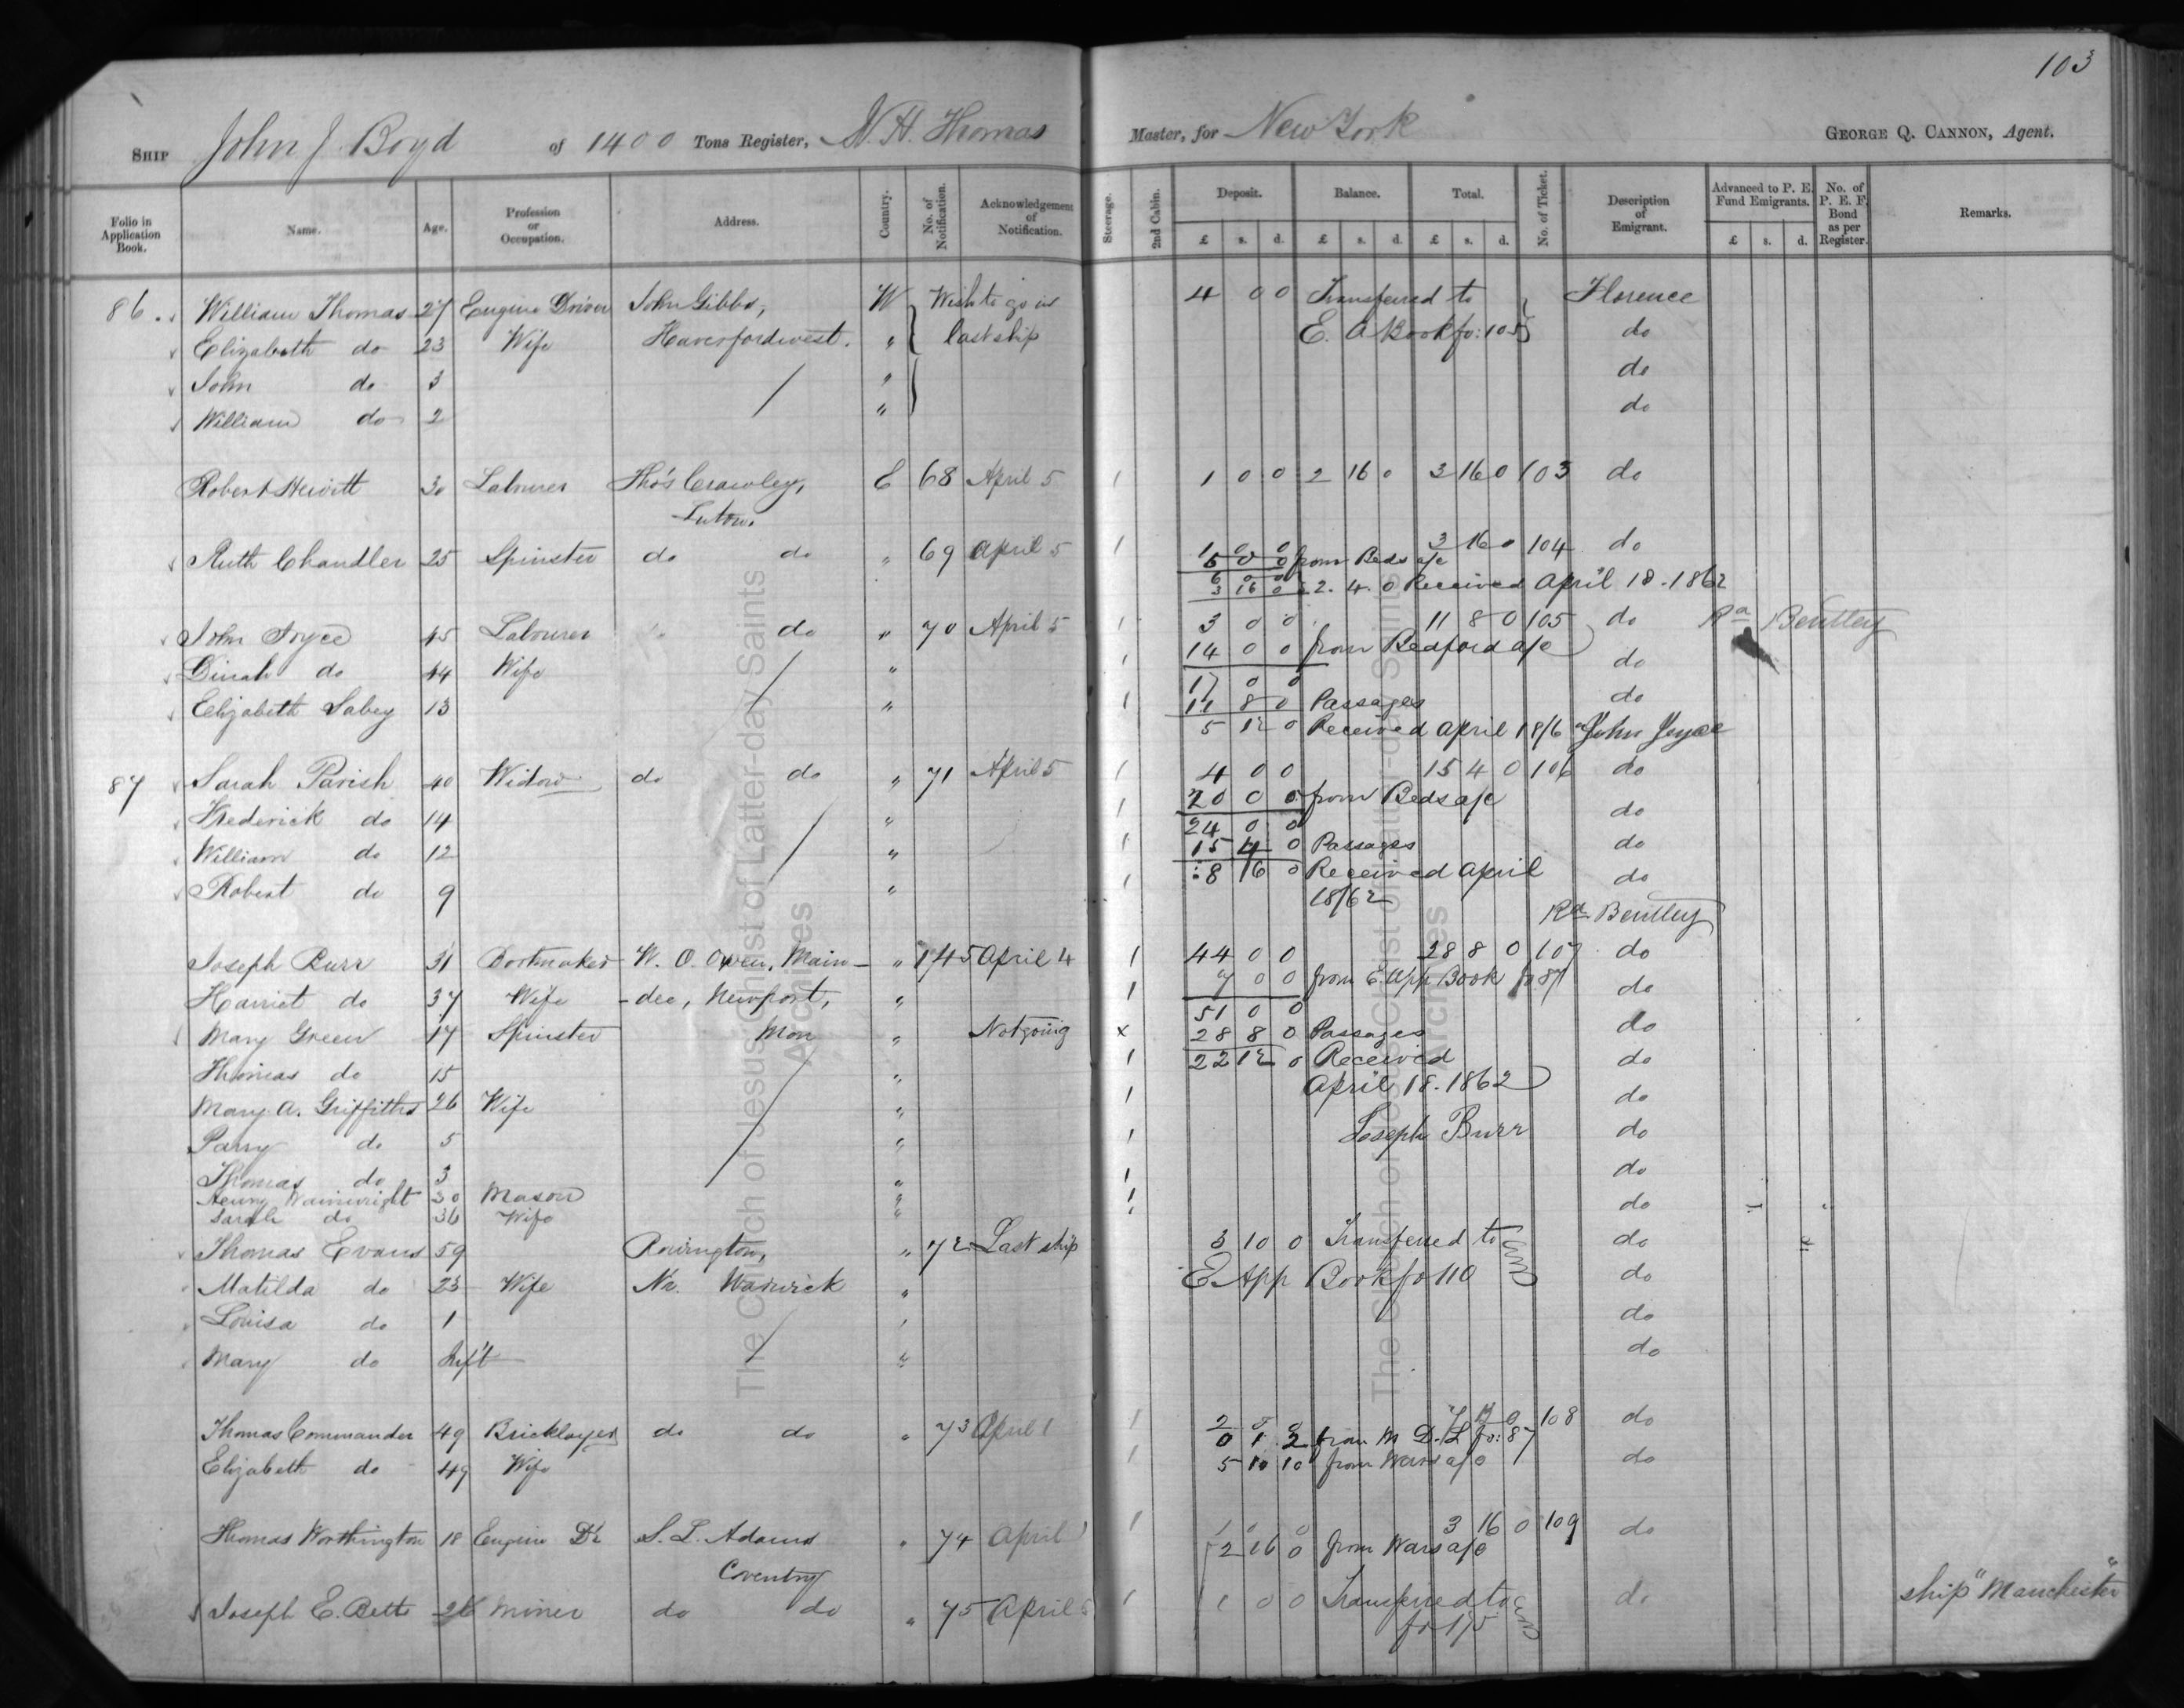 103
SHIP John J. Boyd of 1400 Tons Register, Thomas Master, for New York GEORGE Q. CANNON, Agent.
Folio in Application Book. Name. Age. Profession or Occupation. Address. Country. No. of Notification. Acknowledgement of Notification. Steerage. 2nd Cabin. Deposit. £ s. d. Balance. £ s. d. Total. £ s. d. No. of Ticket. Description of Emigrant. Advanced to P. E. Fund Emigrants. £ s. d. No. of P. E. F. Bond as per Register. Remarks.
86 William Thomas 27 Engine Driver John Gibbs, W Wish to go in 4 0 0 Transferred to Florence
Elizabeth do 23 Wife Haverfordwest. " last ship E. A Book fo: 105 do
John do 3 " do
William do 2 " do
Robert Hewitt 30 Labourer Tho's Crawley, E 68 April 5 1 1 0 0 2 16 0 3 16 0 103 do
Luton.
Ruth Chandler 25 Spinster do do " 69 April 5 1 1 0 0 3 16 0 104 do
5 0 0 from Beds a/c
6 0 0
3 16 0 £2. 4. 0 Received April 18. 1862
John Joyce 45 Labourer do do " 70 April 5 1 3 0 0 11 8 0 105 do Rd Bentley
Dinah do 44 Wife " 1 14 0 0 from Bedford a/c do
17 0 0
Elizabeth Sabey 13 " 1 11 8 0 Passages do
5 12 0 Received April 18/62 John Joyce
87 Sarah Parish 40 Widow do do " 71 April 5 1 4 0 0 15 4 0 106 do
Frederick do 14 " 1 20 0 0 from Beds a/c do
24 0 0
William do 12 " 1 15 4 0 Passages do
Robert do 9 " 1 8 16 0 Received April do
18/62
Rd Bentley
Joseph Burr 31 Bootmaker W. O. Owen, Main- " 145 April 4 1 44 0 0 28 8 0 107 do
Harriet do 37 Wife -dee, Newport, " 1 7 0 0 from E. App Book fo 87 do
51 0 0
Mary Green 17 Spinster Mon " Not going x 28 8 0 Passages do
Thomas do 15 " 1 22 12 0 Received do
April 18. 1862
Mary A. Griffiths 26 Wife " 1 do
Parry do 5 " 1 Joseph Burr do
Thomas do 3 " 1 do
Henry Wainwright 30 Mason " 1 do
Sarah do 36 Wife " 1
Thomas Evans 59 Rowington, " 72 Last ship 3 10 0 Transferred to do
Matilda do 23 Wife Nr. Warwick " E App Book fo 110 do
Louisa do 1 " do
Mary do Inf't " do
Thomas Commander 49 Bricklayer do do " 73 April 1 1 2 0 0 7 12 0 108 do
0 1 2 from M D. L fo: 87
Elizabeth do 49 Wife 1 5 10 10 from Warw a/c do
Thomas Worthington 18 Engine Dr S. L. Adams " 74 April 1 1 1 0 0 3 16 0 109 do
2 16 0 from Warw a/c
Coventry
Joseph E. Betts 26 Miner do do " 75 April 5 1 1 0 0 Transferred to do ship "Manchester"
fo 175
The Church of Jesus Christ of Latter-day Saints
Archives
The Church of Jesus Christ of Latter-day Saints
Archives